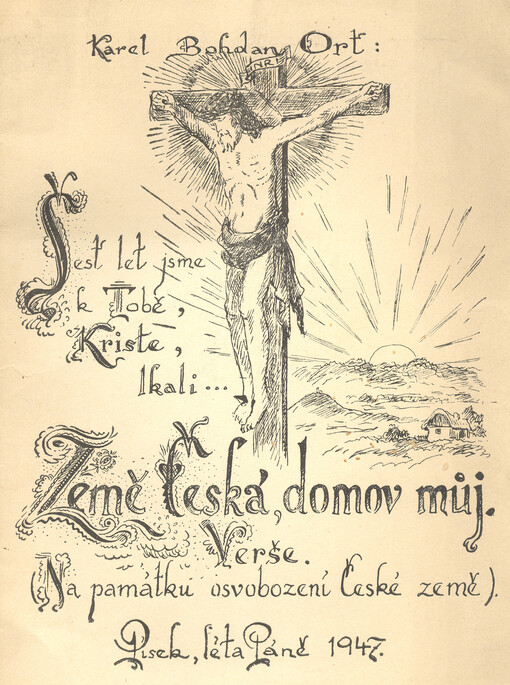 Karel Bohdan Ort:
INRI
Šest let jsme
k Tobě,
Kriste,
lkali...
Země Česká, domov můj.
Verše.
(Na památku osvobození České země).
Písek, léta Páně 1947.